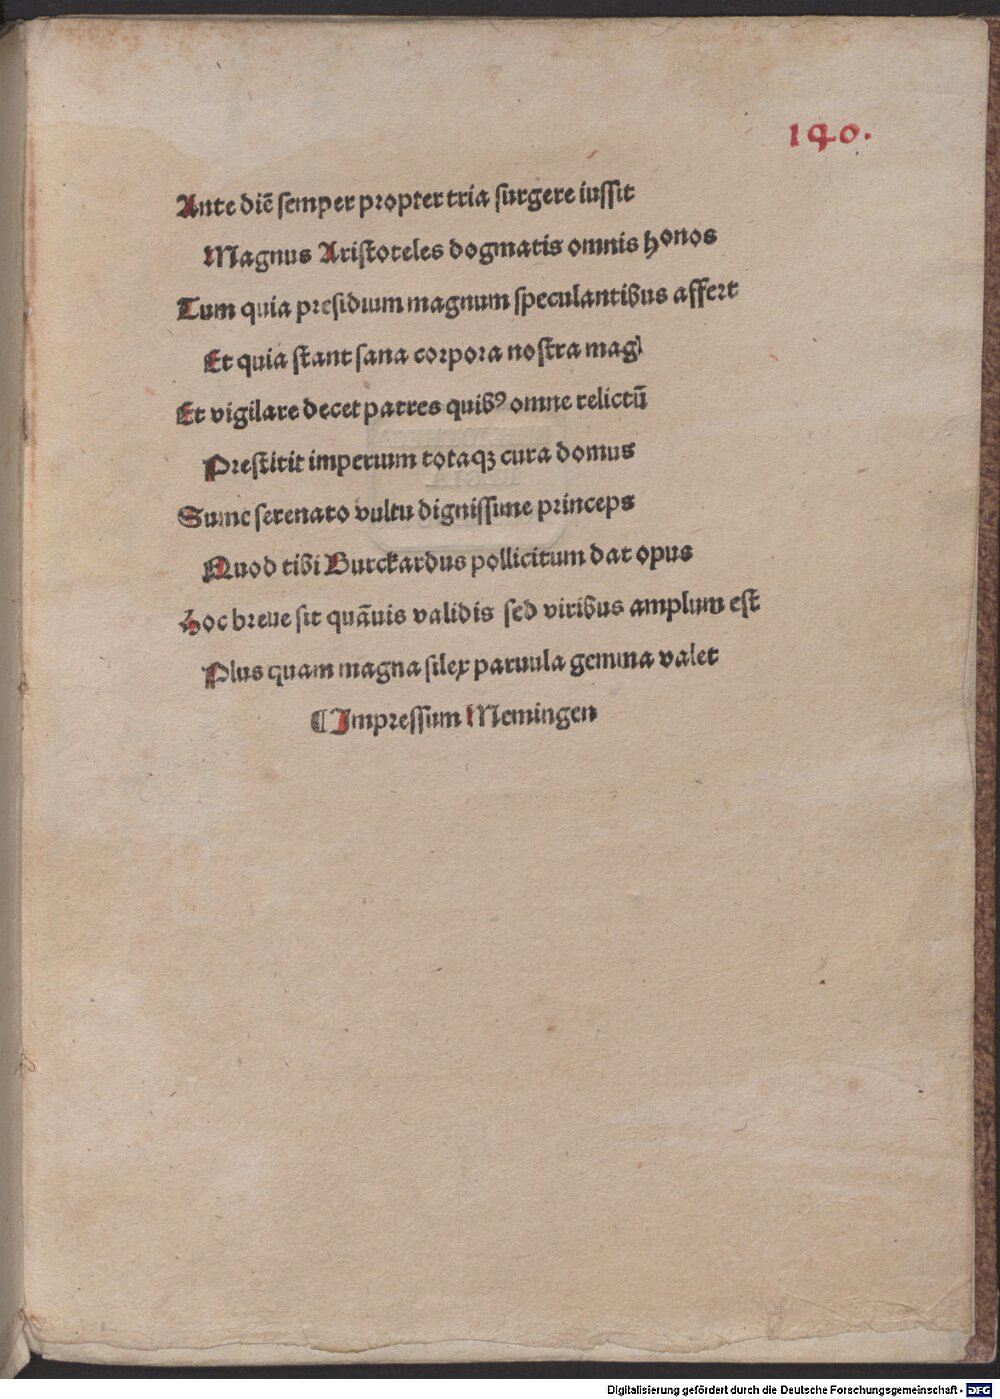 190.
Ante diē semper propter tria surgere iussit
Magnus Aristoteles dogmatis omnis honos
Tum quia presidium magnum speculantibus affert
Et quia stant sana corpora nostra mag
Et vigilare decet patres quibꝰ omne relictū
Prestitit imperium totaqꝫ cura domus
Sume serenato vultu dignissime princeps
Quod tibi Burckardus pollicitum dat opus
Hoc breue sit quāuis validis sed viribus amplum est
Plus quam magna silex paruula gemma valet
¶ Impressum Memingen
Digitalisierung gefördert durch die Deutsche Forschungsgemeinschaft - DFG